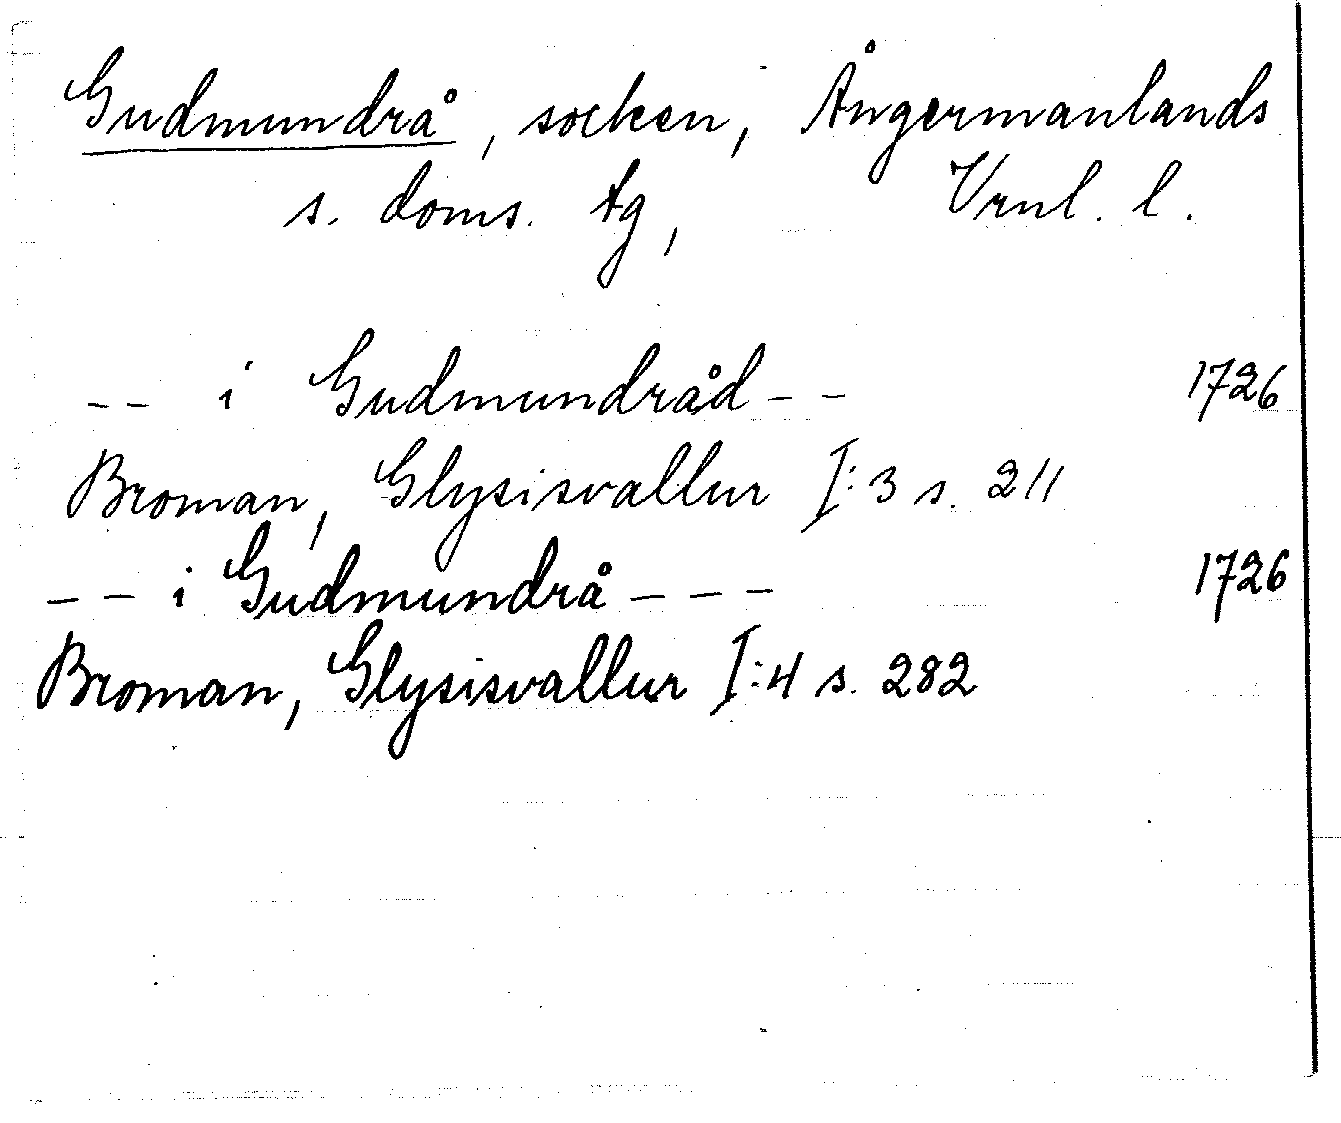 Gudmundrå, socken, Ångermanlands
s. doms. tg, Vrnl. l.
-- i Gudmundråd -- 1726
Broman, Glysisvallur I:3 s. 211
-- i Gudmundrå --- 1726
Broman, Glysisvallur I:4 s. 282